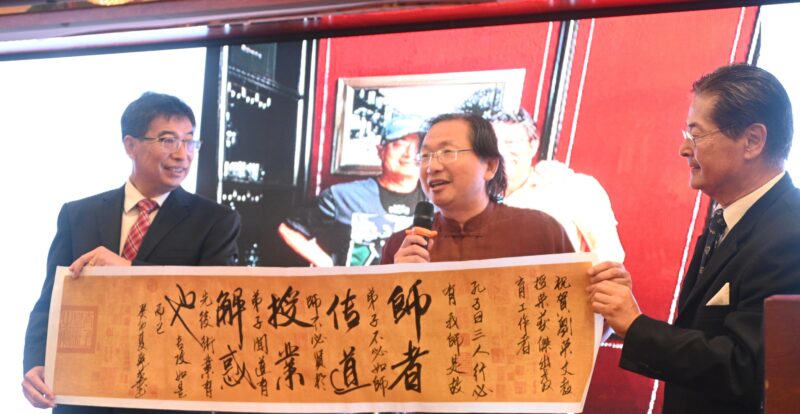 祝賀劉文教
授榮获傑出教
育工作者
孔子曰三人行必
有我師是故
師者
弟子不必如師
传道
師不必賢於
授業
弟子聞道有
解惑
先後術業有
也
專攻如是
而已
癸卯夏